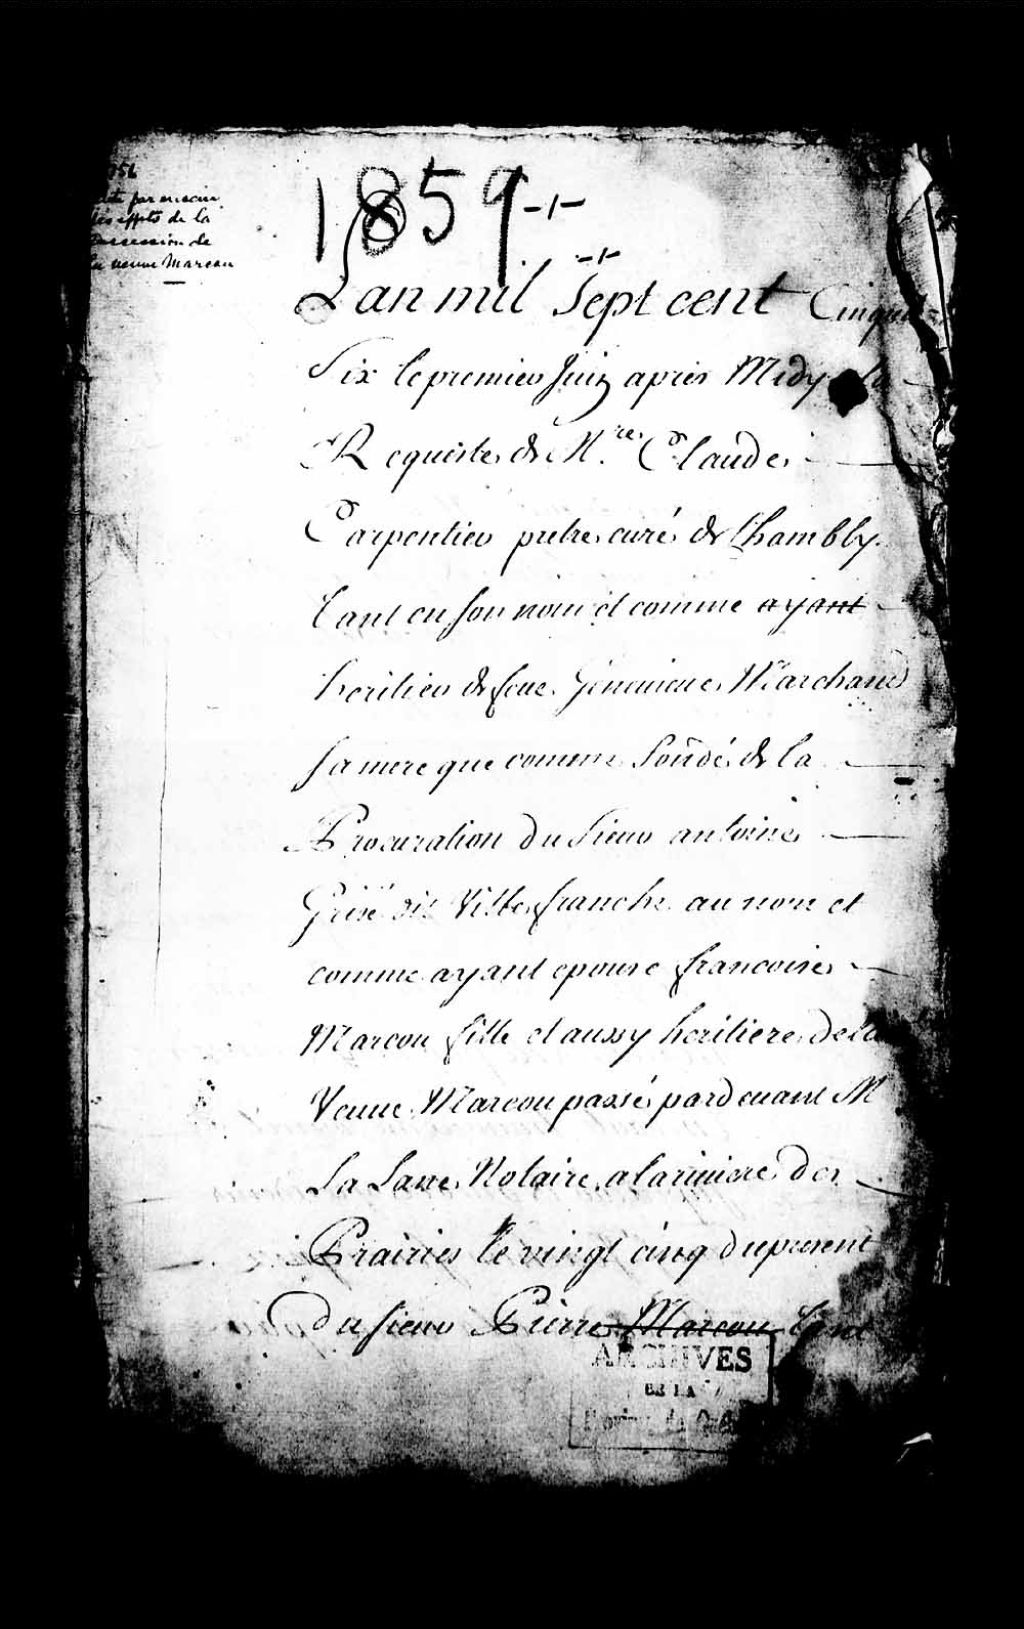 1859
par encan
des effets de la
succession de
la veuve Marcou
Lan mil Sept cent Cinqu
Six le premier Juin apres Midy a la
Requeste de M.re Claude
Carpentier pretre curé de Chambly
tant en son nom et comme ayant
heritier de feue Genevieve Marchand
sa mere que comme fondé de la
Procuration du Sieur antoine
Grisé dit Villefranche au nom et
comme ayant epousé francoise
Marcou fille et aussy heritiere de la
Veuve Marcou passé pardevant M
La Sasse Notaire a la riviere des
Prairies le vingt cinq du present
du sieur Pierre Marcou
ARCHIVES
DE LA